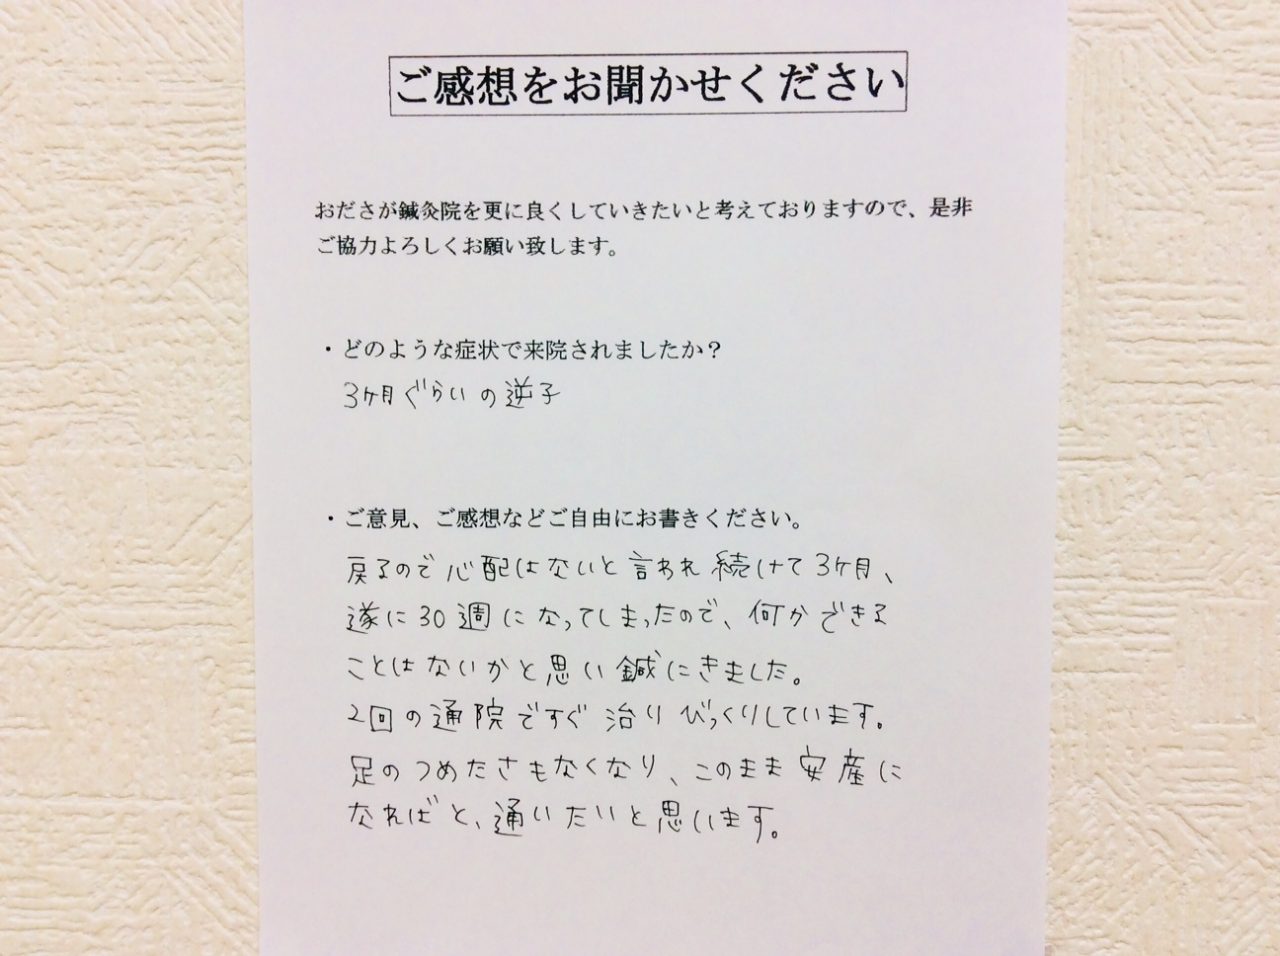 ご感想をお聞かせください
おださが鍼灸院を更に良くしていきたいと考えておりますので、是非
ご協力よろしくお願い致します。
・どのような症状で来院されましたか？
3ヶ月ぐらいの逆子
・ご意見、ご感想などご自由にお書きください。
戻るので心配はないと言われ続けて3ヶ月、
遂に30週になってしまったので、何かできる
ことはないかと思い鍼にきました。
2回の通院ですぐ治りびっくりしています。
足のつめたさもなくなり、このまま安産に
なればと、通いたいと思います。